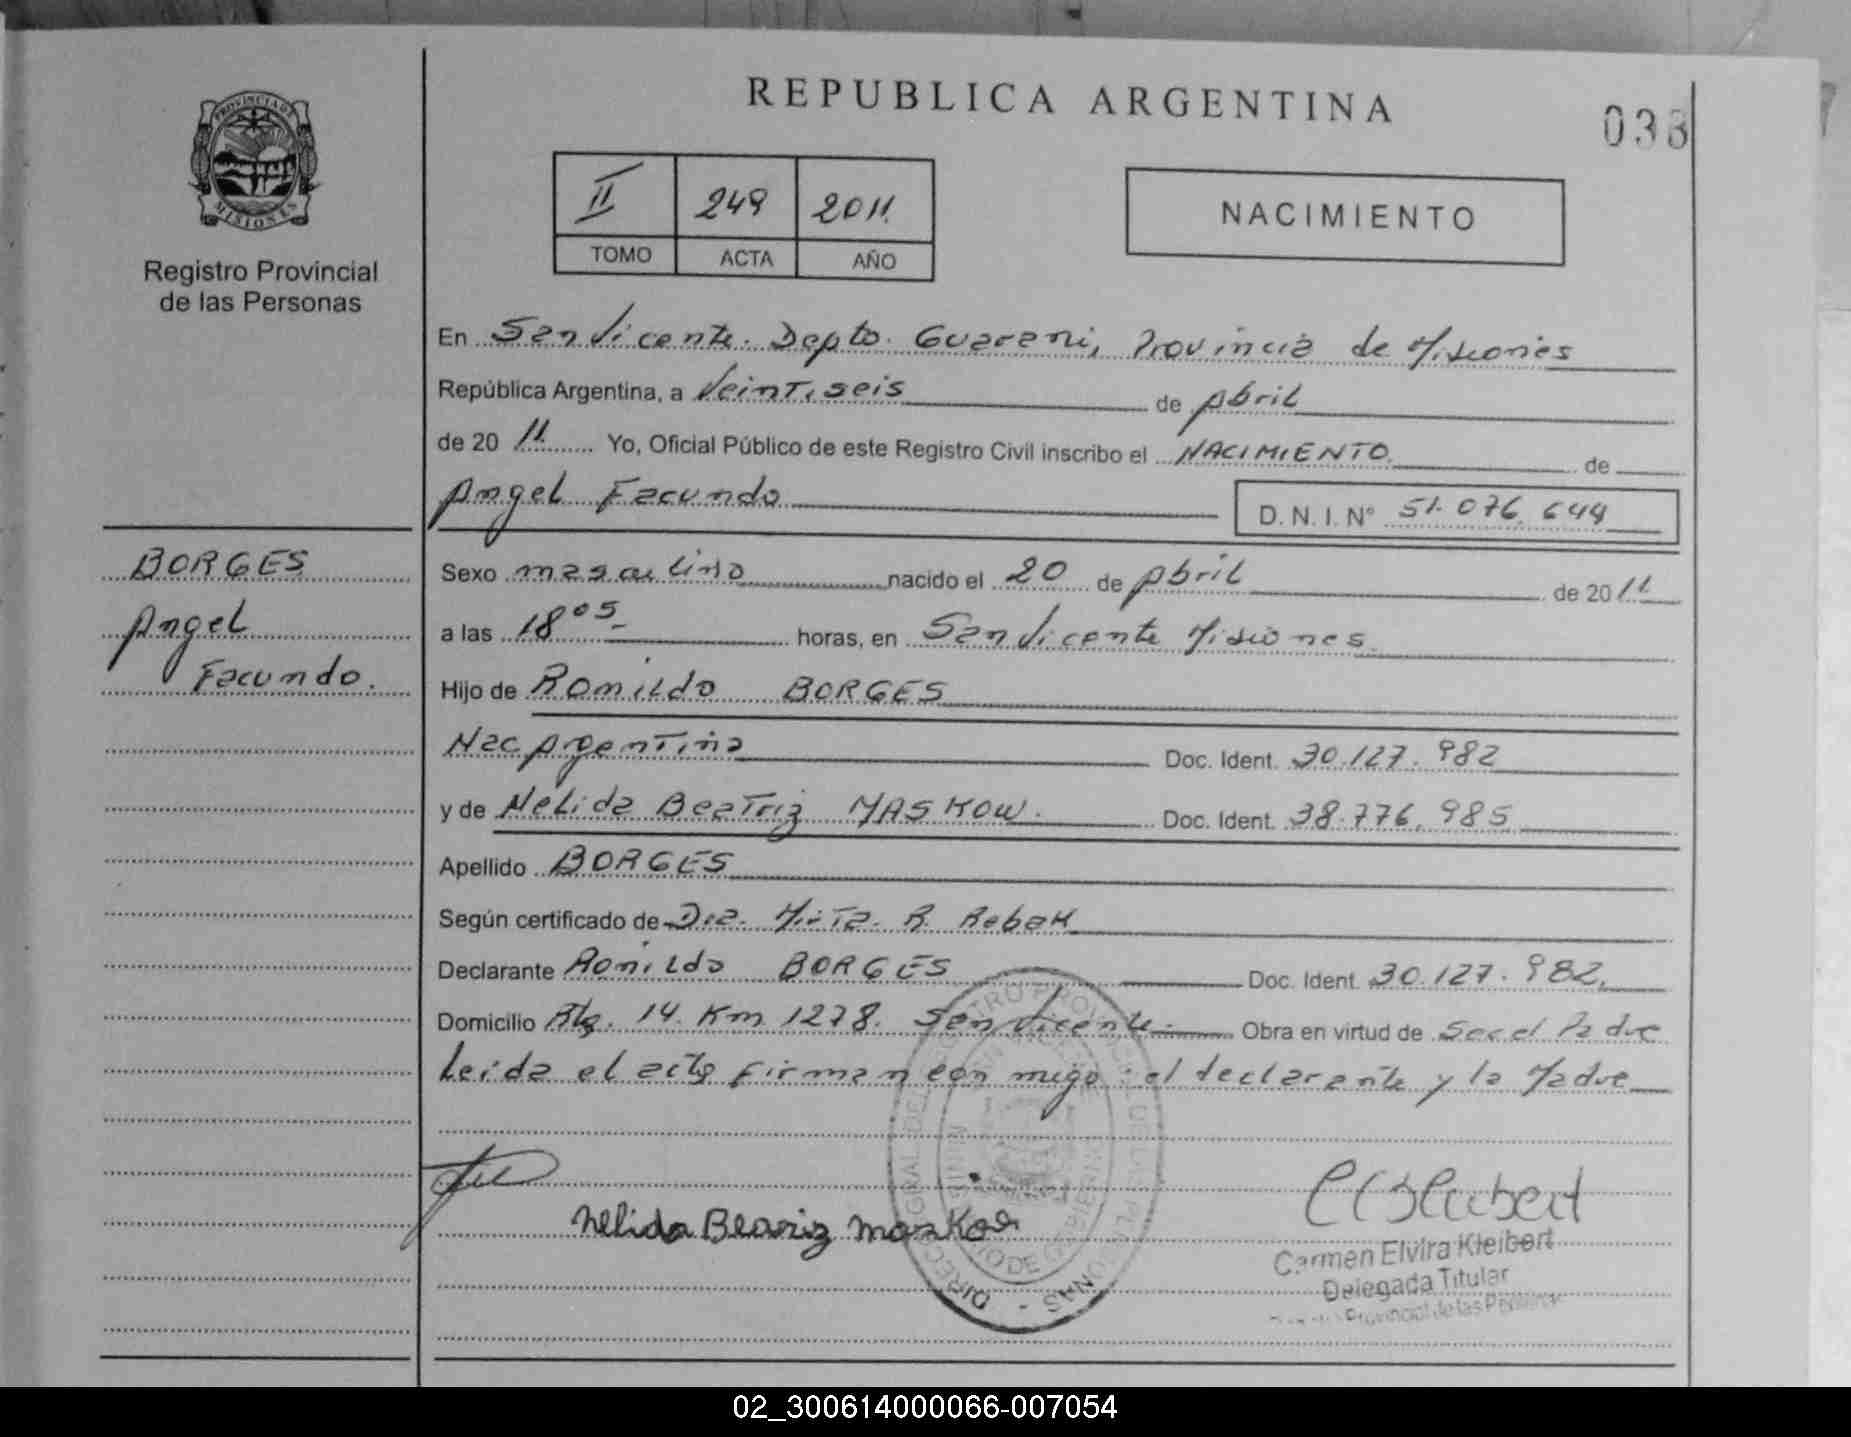 REPUBLICA ARGENTINA
033
PROVINCIA DE
MISIONES
Registro Provincial
de las Personas
II 249 2011.
TOMO ACTA AÑO
NACIMIENTO
En San Vicente. Depto. Guarani, Provincia de Misiones
República Argentina, a Veintiseis de Abril
de 20 11. Yo, Oficial Público de este Registro Civil inscribo el NACIMIENTO. de
Angel Facundo D. N. I. Nº 51.076.644
BORGES
Angel
Facundo.
Sexo masculino nacido el 20 de Abril de 2011
a las 18 05 horas, en San Vicente Misiones.
Hijo de Romildo BORGES
Nac Argentina Doc. Ident. 30.127.982
y de Nelida Beatriz MASKOW. Doc. Ident. 38.776.985
Apellido BORGES
Según certificado de Dra. Mirta. R. Rebak
Declarante Romildo BORGES Doc. Ident. 30.127.982.
Domicilio Rta. 14. Km 1278. San Vicente. Obra en virtud de Ser el Padre
Leida el acta firman con migo: el declarante y la Madre
Nelida Beariz Maskow
Carmen Elvira Kleibert
Delegada Titular
Provincial de las Personas
02_300614000066-007054